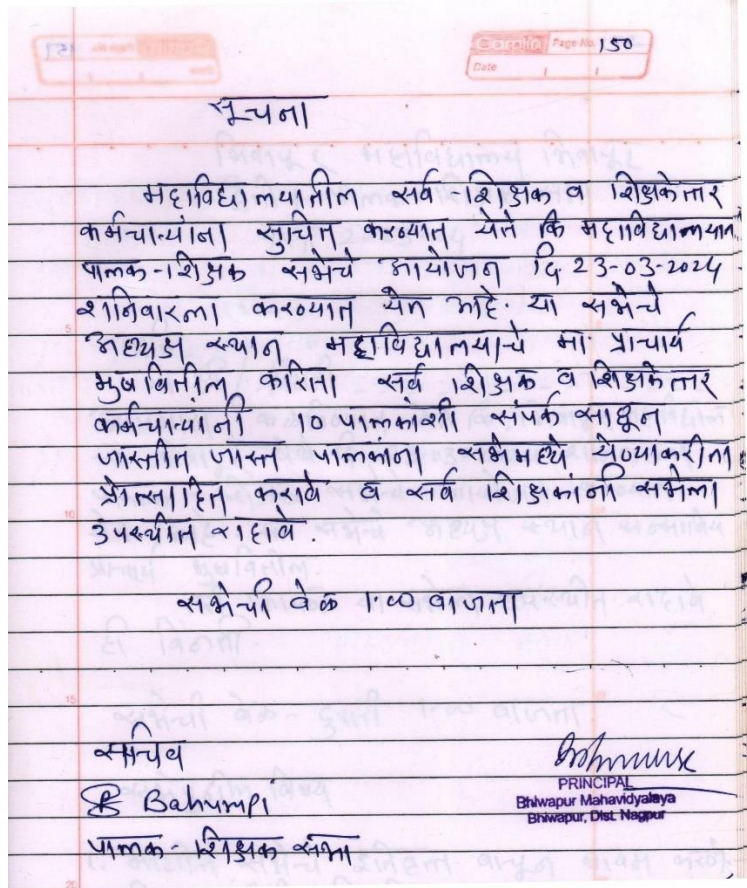 Camlin Page No. 150
Date
सूचना
महाविद्यालयातील सर्व शिक्षक व शिक्षकेत्तर
कर्मचाऱ्यांना सुचित करण्यात येते कि महाविद्यालयात
पालक-शिक्षक सभेचे आयोजन दि 23-03-2024
शनिवारला करण्यात येत आहे. या सभेचे
अध्यक्ष स्थान महाविद्यालयाचे मा प्राचार्य
भुषवितील करिता सर्व शिक्षक व शिक्षकेत्तर
कर्मचाऱ्यांनी 10 पालकाशी संपर्क साधून
जास्तीत जास्त पालकांना सभेमध्ये येण्याकरीता
प्रोत्साहित करावे व सर्व शिक्षकांनी सभेला
उपस्थीत रहावे.
सभेची वेळ 1.00 वाजता
सचिव
पालक-शिक्षक संघ
PRINCIPAL
Bhiwapur Mahavidyalaya
Bhiwapur, Dist. Nagpur